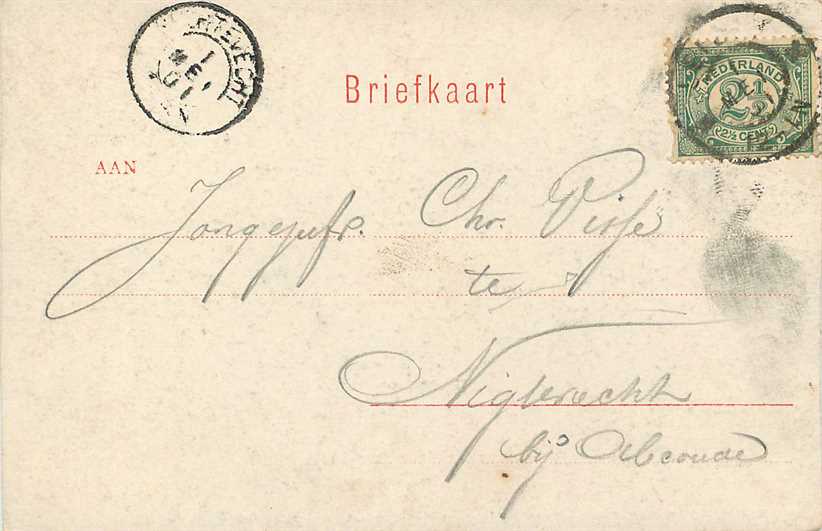 1
MEI
01
Briefkaart
NEDERLAND
2½
2½ CENT
AAN
Jongejufr. Chr. Visse
te
Nigtevecht
bij Abcoude